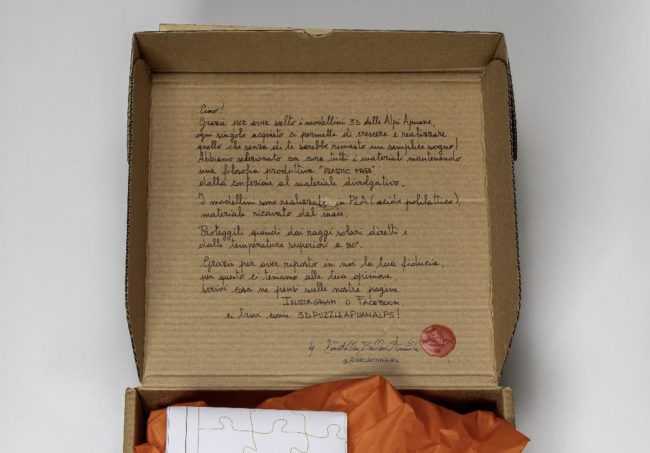 Ciao!
Grazie per aver scelto i modellini 3D delle Alpi Apuane,
ogni singolo acquisto ci permette di crescere e realizzare
quello che senza di te sarebbe rimasto un semplice sogno!
Abbiamo selezionato con cura tutti i materiali mantenendo
una filosofia produttiva "PLASTIC FREE"
dalla confezione al materiale divulgativo.
I modellini sono realizzati in PLA (acido polilattico),
materiale ricavato dal mais.
Proteggili quindi dai raggi solari diretti e
dalle temperature superiori a 80°.
Grazie per aver riposto in noi la tua fiducia,
per questo ci teniamo alla tua opinione,
scrivi cosa ne pensi sulle nostre pagine
INSTAGRAM O FACEBOOK
ci trovi come 3DPUZZLEAPUANALPS!
by